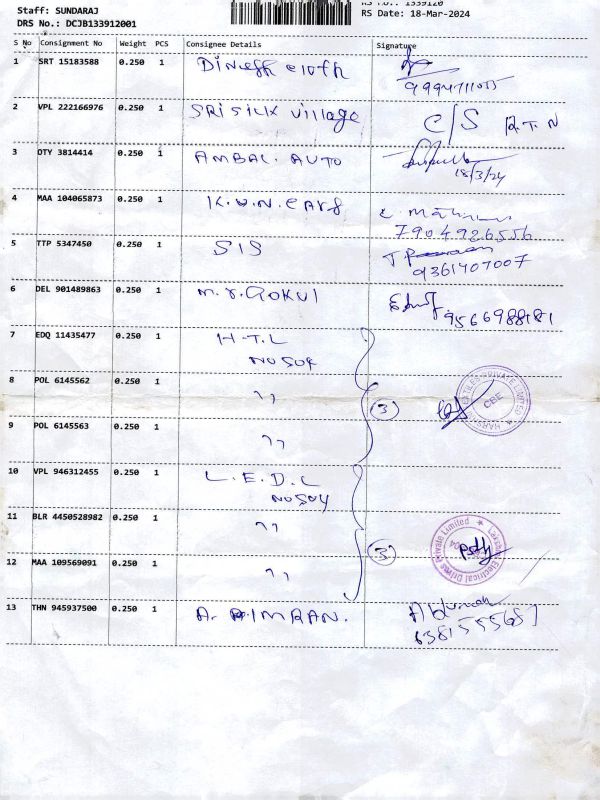 Staff: SUNDARAJ
DRS No.: DCJB133912001
RS Date: 18-Mar-2024
S No Consignment No Weight PCS Consignee Details Signature
1 SRT 15183588 0.250 1 Dinesh cloth
2 VPL 222166976 0.250 1 SRI SILK village C/S R.T.N
3 OTY 3814414 0.250 1 AMBAL AUTO
18/3/24
4 MAA 104065873 0.250 1 K.U.N. CARS
7904926556
5 TTP 5347450 0.250 1 SIS
9361407007
6 DEL 901489863 0.250 1 M.Y. GOKUL
7 EDQ 11435477 0.250 1 H.T.L
NO 504
8 POL 6145562 0.250 1 " (3)
CBE
9 POL 6145563 0.250 1 "
10 VPL 946312455 0.250 1 L.E.D.L
NO 504
11 BLR 4450528982 0.250 1 "
(3)
Lakshmi Electrical Drives Private Limited
12 MAA 109569091 0.250 1 "
13 THN 945937500 0.250 1 A. IMRAN.